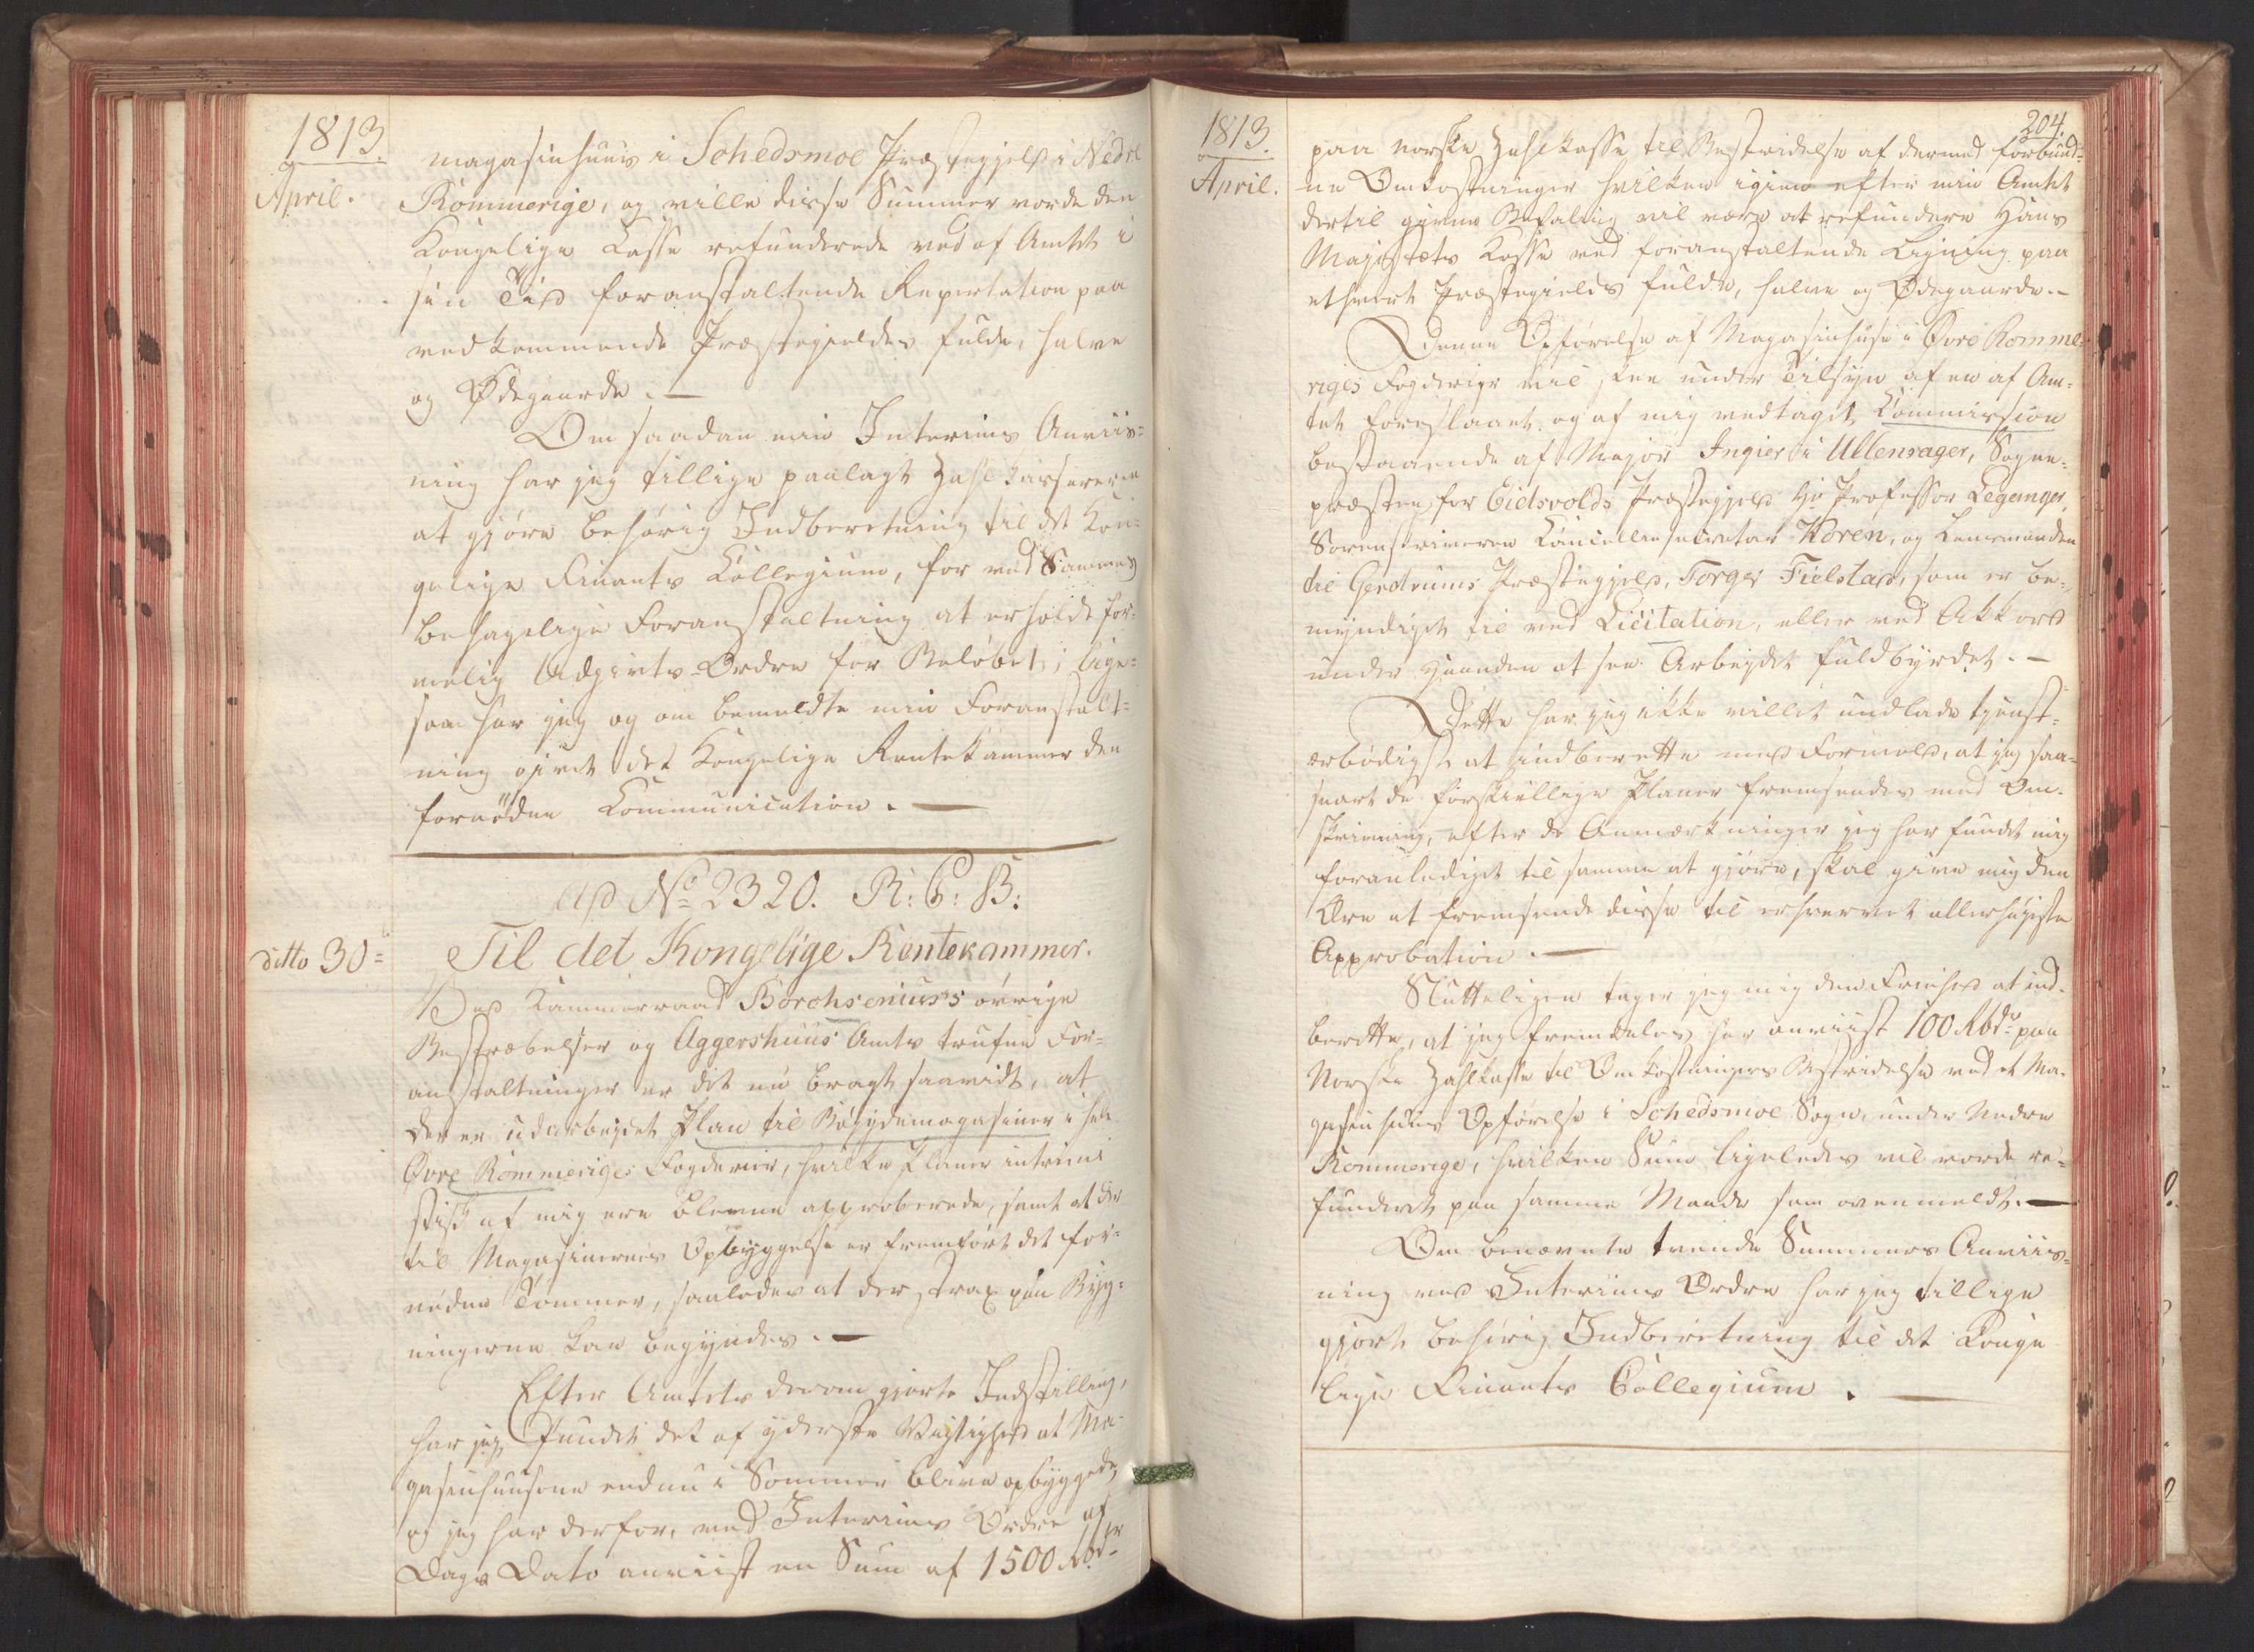 1813.
April.
magasinhuus i Schedsmoe Præstegjeld i Nedre
Rommerige, og ville disse Summer vorde den
Kongelige Casse refunderede ved af Amtet i
sin Tid foranstaltende Repartation paa
vedkommende Præstegieldes fulde, halve
og Ødegaarde. —
Om saadan min Interims Anviis-
ning har jeg tillige paalagt Zahlkassereren
at gjøre behørig Indberetning til det Kon-
gelige Finants Collegium, for ved Sammes
behagelige Foranstaltning at erholde for-
melig Udgivts-Ordre for Beløbet; lige-
som har jeg og om bemeldte min Foranstalt-
ning givet det Kongelige Rentekammer den
fornødne Communication. —
ad No 2320. R: C: B:
ditto 30=
Til det Kongelige Rentekammer.
Ved Kammerraad Borchsenius's øvrige
Bestræbelser og Aggershuus Amts trufne For-
anstaltninger er det nu bragt saavidt, at
der er udarbejdet Plan til Bøigdemagasiner i hele
Øvre Rommeriges Fogderier, hvilke Planer interimi
stisk af mig ere blevne approberede, samt at der
til Magasinernes Opbyggelse er fremført det for-
nødne Tømmer, saaledes at der strax paa Byg-
ningerne kan begyndes. —
Efter Amtets derom gjorte Indstilling,
har jeg fundet det af yderste Vigtighed at Ma-
gasinhuusene endnu i Sommer blive opbyggede,
og jeg har derfor, med Interims Ordre af
Dags Dato anviist en Sum af 1500 Rbdr
204.
1813.
April.
paa norske Zahlkasse til Bestridelse af dermed forbund-
ne Omkostninger hvilken igien efter min Amtet
dertil givne Befaling vil være at refundere Hans
Majestæts Kasse ved foranstaltende Ligning paa
ethvert Præstegields fulde, halve og Ødegaarde. —
Denne Opførelse af Magasinhuse i Øvre Romme-
riges Fogderier vil skee under Tilsyn af en af Am-
tet foreslaaet og af mig vedtaget Commission
bestaaende af Major Ingier i Ullensager, Sogne-
præsten for Eidsvolds Præstegjeld Hr Professor Leganger,
Sorenskriveren Cancellisecretær Koren, og Lensmanden
til Gerdrums Præstegjeld, Torger Fielstad, som er be-
myndiget til ved Licitation, eller ved Akkord
under Haanden at see Arbejdet fuldbyrdet. —
Dette har jeg ikke villet undlade tjenst-
ærbødigst at indberette med Formeld, at jeg saa-
snart de forskiellige Planer fremsendes med Om-
skrivning, efter de Anmærkninger jeg har fundet mig
foranlediget til samme at gjøre, skal give mig den
Ære at fremsende disse til erhvervet allerhøjeste
Approbation. —
Slutteligen tager jeg mig den Frihed at ind-
berette, at jeg fremdeles har anviist 100 Rbdr paa
Norske Zahlkasse til Omkostningers Bestridelse ved et Ma-
gasinhuses Opførelse i Schedsmoe Sogn, under Nedre
Rommerige, hvilken Sum ligeledes vil vorde re-
funderet paa samme Maade som ovenmeldt. —
Om benævnte tvende Summers Anviis-
ning ved Interims Ordre har jeg tillige
gjort behørig Indberetning til det Konge
lige Finants Collegium. —